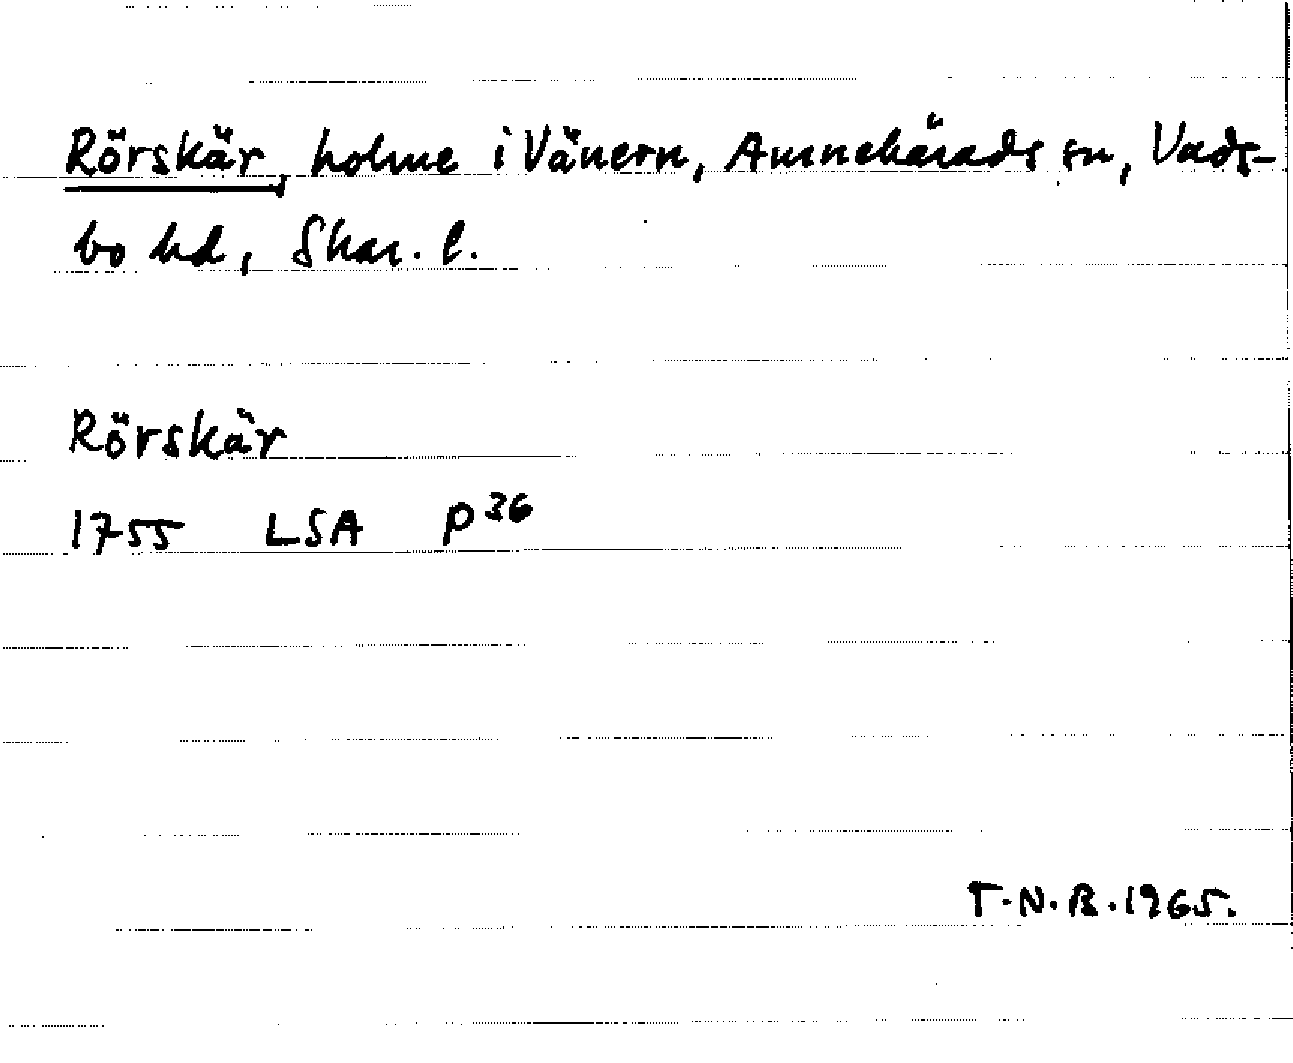 Rörskär, holme i Vänern, Amnehärads sn, Vads-
bo hd, Skar. l.
Rörskär
1755 LSA P 36
T.N.B. 1965.